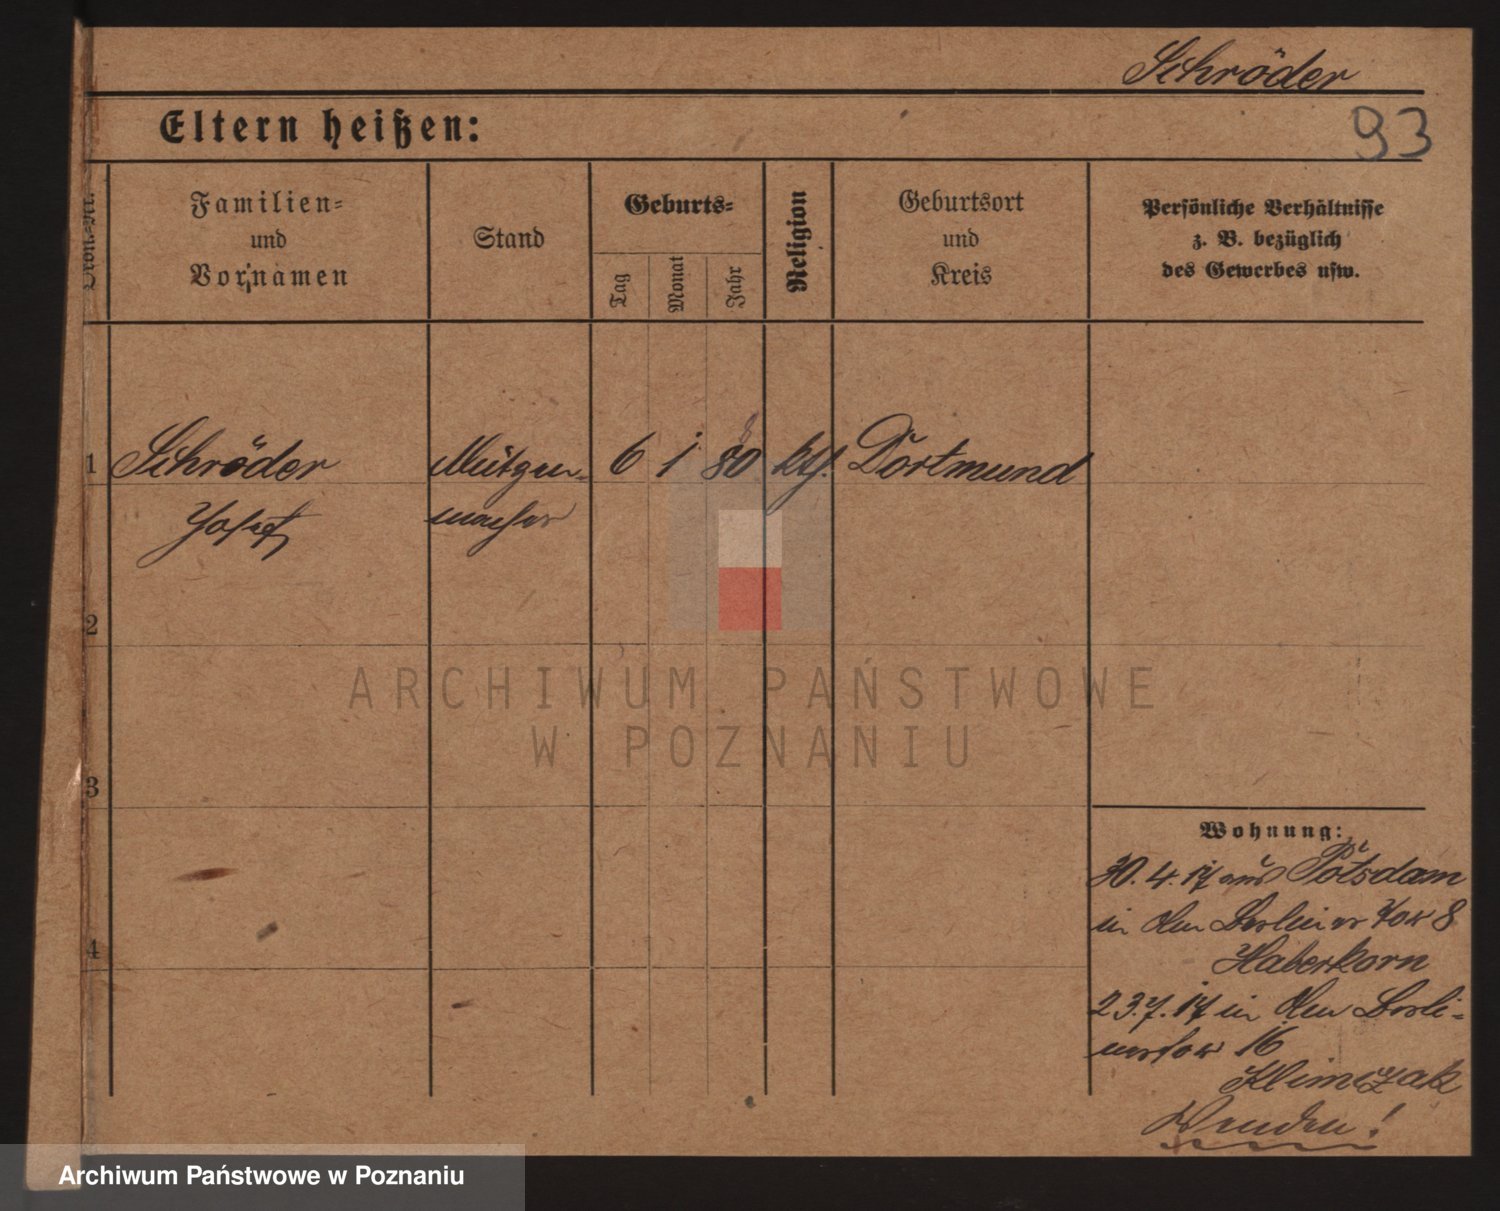 Schröder
93
Eltern heißen:
Ordn.-Nr.
Familien-
und
Vornamen
Stand
Geburts-
Tag
Monat
Jahr
Religion
Geburtsort
und
Kreis
Persönliche Verhältnisse
z. B. bezüglich
des Gewerbes usw.
1 Schröder Mützen- 6 1 80 kth. Dortmund
Josef macher
2
3
4
Wohnung:
30.4.17 aus Potsdam
in den Berliner 8
Haberkorn
23.7.17 in den Berli-
16
Klimczak
Wenden!
ARCHIWUM PAŃSTWOWE
W POZNANIU
Archiwum Państwowe w Poznaniu